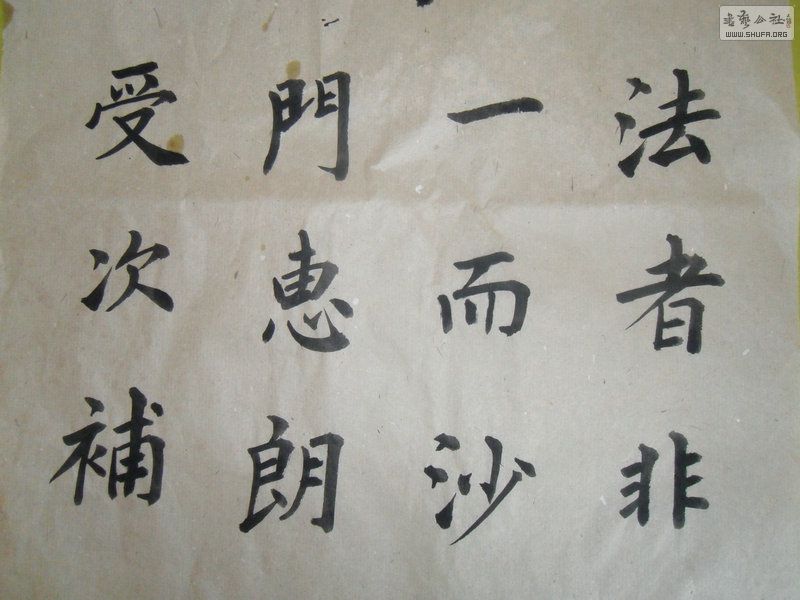 法者非
一而沙
門惠朗
受次補
書藝公社
WWW.SHUFA.ORG